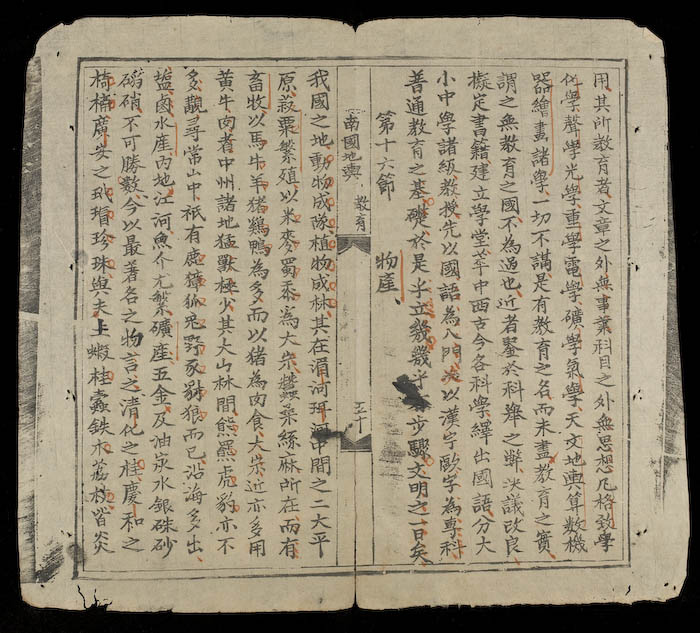 用其所教育者文章之外無事業科目之外無思想凡格致學
化學聲學光學重學電學礦學氣學天文地輿算數機
器繪畫諸學一切不講是有教育之名而未盡教育之實
謂之無教育之國不為過也近者鑒於科舉之弊決議改良
擬定書籍建立學堂萃中西古今各科學繹出國語分大
小中學諸級教授先以國語為入門次以漢字歐字為專科
普通教育之基礎於是乎立幾幾乎步驟文明之一日矣
第十六節 物產
南國地輿 教育 五十
我國之地動物成隊植物成林其在湄河珥河中間之二大平
原菽粟繁殖以米麥蜀黍為大宗蠶桑絲麻所在而有
畜牧以馬牛羊猪鷄鴨為多而以猪為肉食大宗近亦多用
黃牛肉者中州諸地猛獸極少其大山林間熊羆虎豹亦不
多覯尋常山中祇有鹿獐狐兎野豕豺狼而已沿海多出
塩鹵水產內地江河魚介尤繁礦產五金及油炭水銀硃砂
硇硝不可勝數今以最著名之物言之清化之桂慶和之
椅楠廣安之玳瑁珍珠與夫土蝦桂蠹鉄木荔枝皆炎